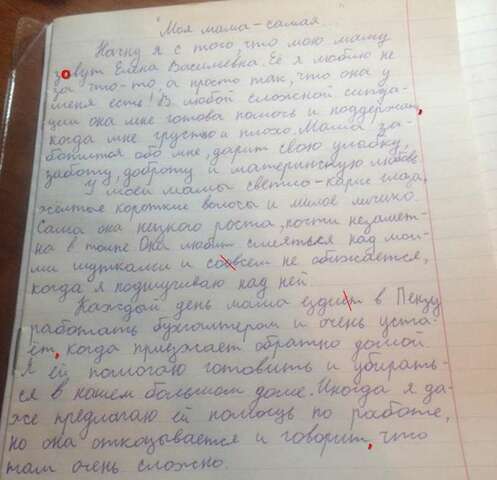 "Моя мама-самая..."
Начну я с того, что мою маму
зовут Елена Васильевна. Её я люблю не
за что-то, а просто так, что она у
меня есть! В любой сложной ситуа-
ции она мне готова помочь и поддержать,
когда мне грустно и плохо. Мама за-
ботится обо мне, дарит свою улыбку,
заботу, доброту и материнскую любовь.
У моей мамы светло-карие глаза,
жёлтые короткие волосы и милое личико.
Сама она низкого роста, почти незамет-
на в толпе. Она любит смеяться над мои-
ми шутками и совсем не обижается,
когда я подшучиваю над ней.
Каждый день мама ездит в Пензу
работать бухгалтером и очень уста-
ёт, когда приезжает обратно домой.
Я ей помогаю готовить и убирать-
ся в нашем большом доме. Иногда я да-
же предлагаю ей помощь по работе,
но она отказывается и говорит, что
там очень сложно.